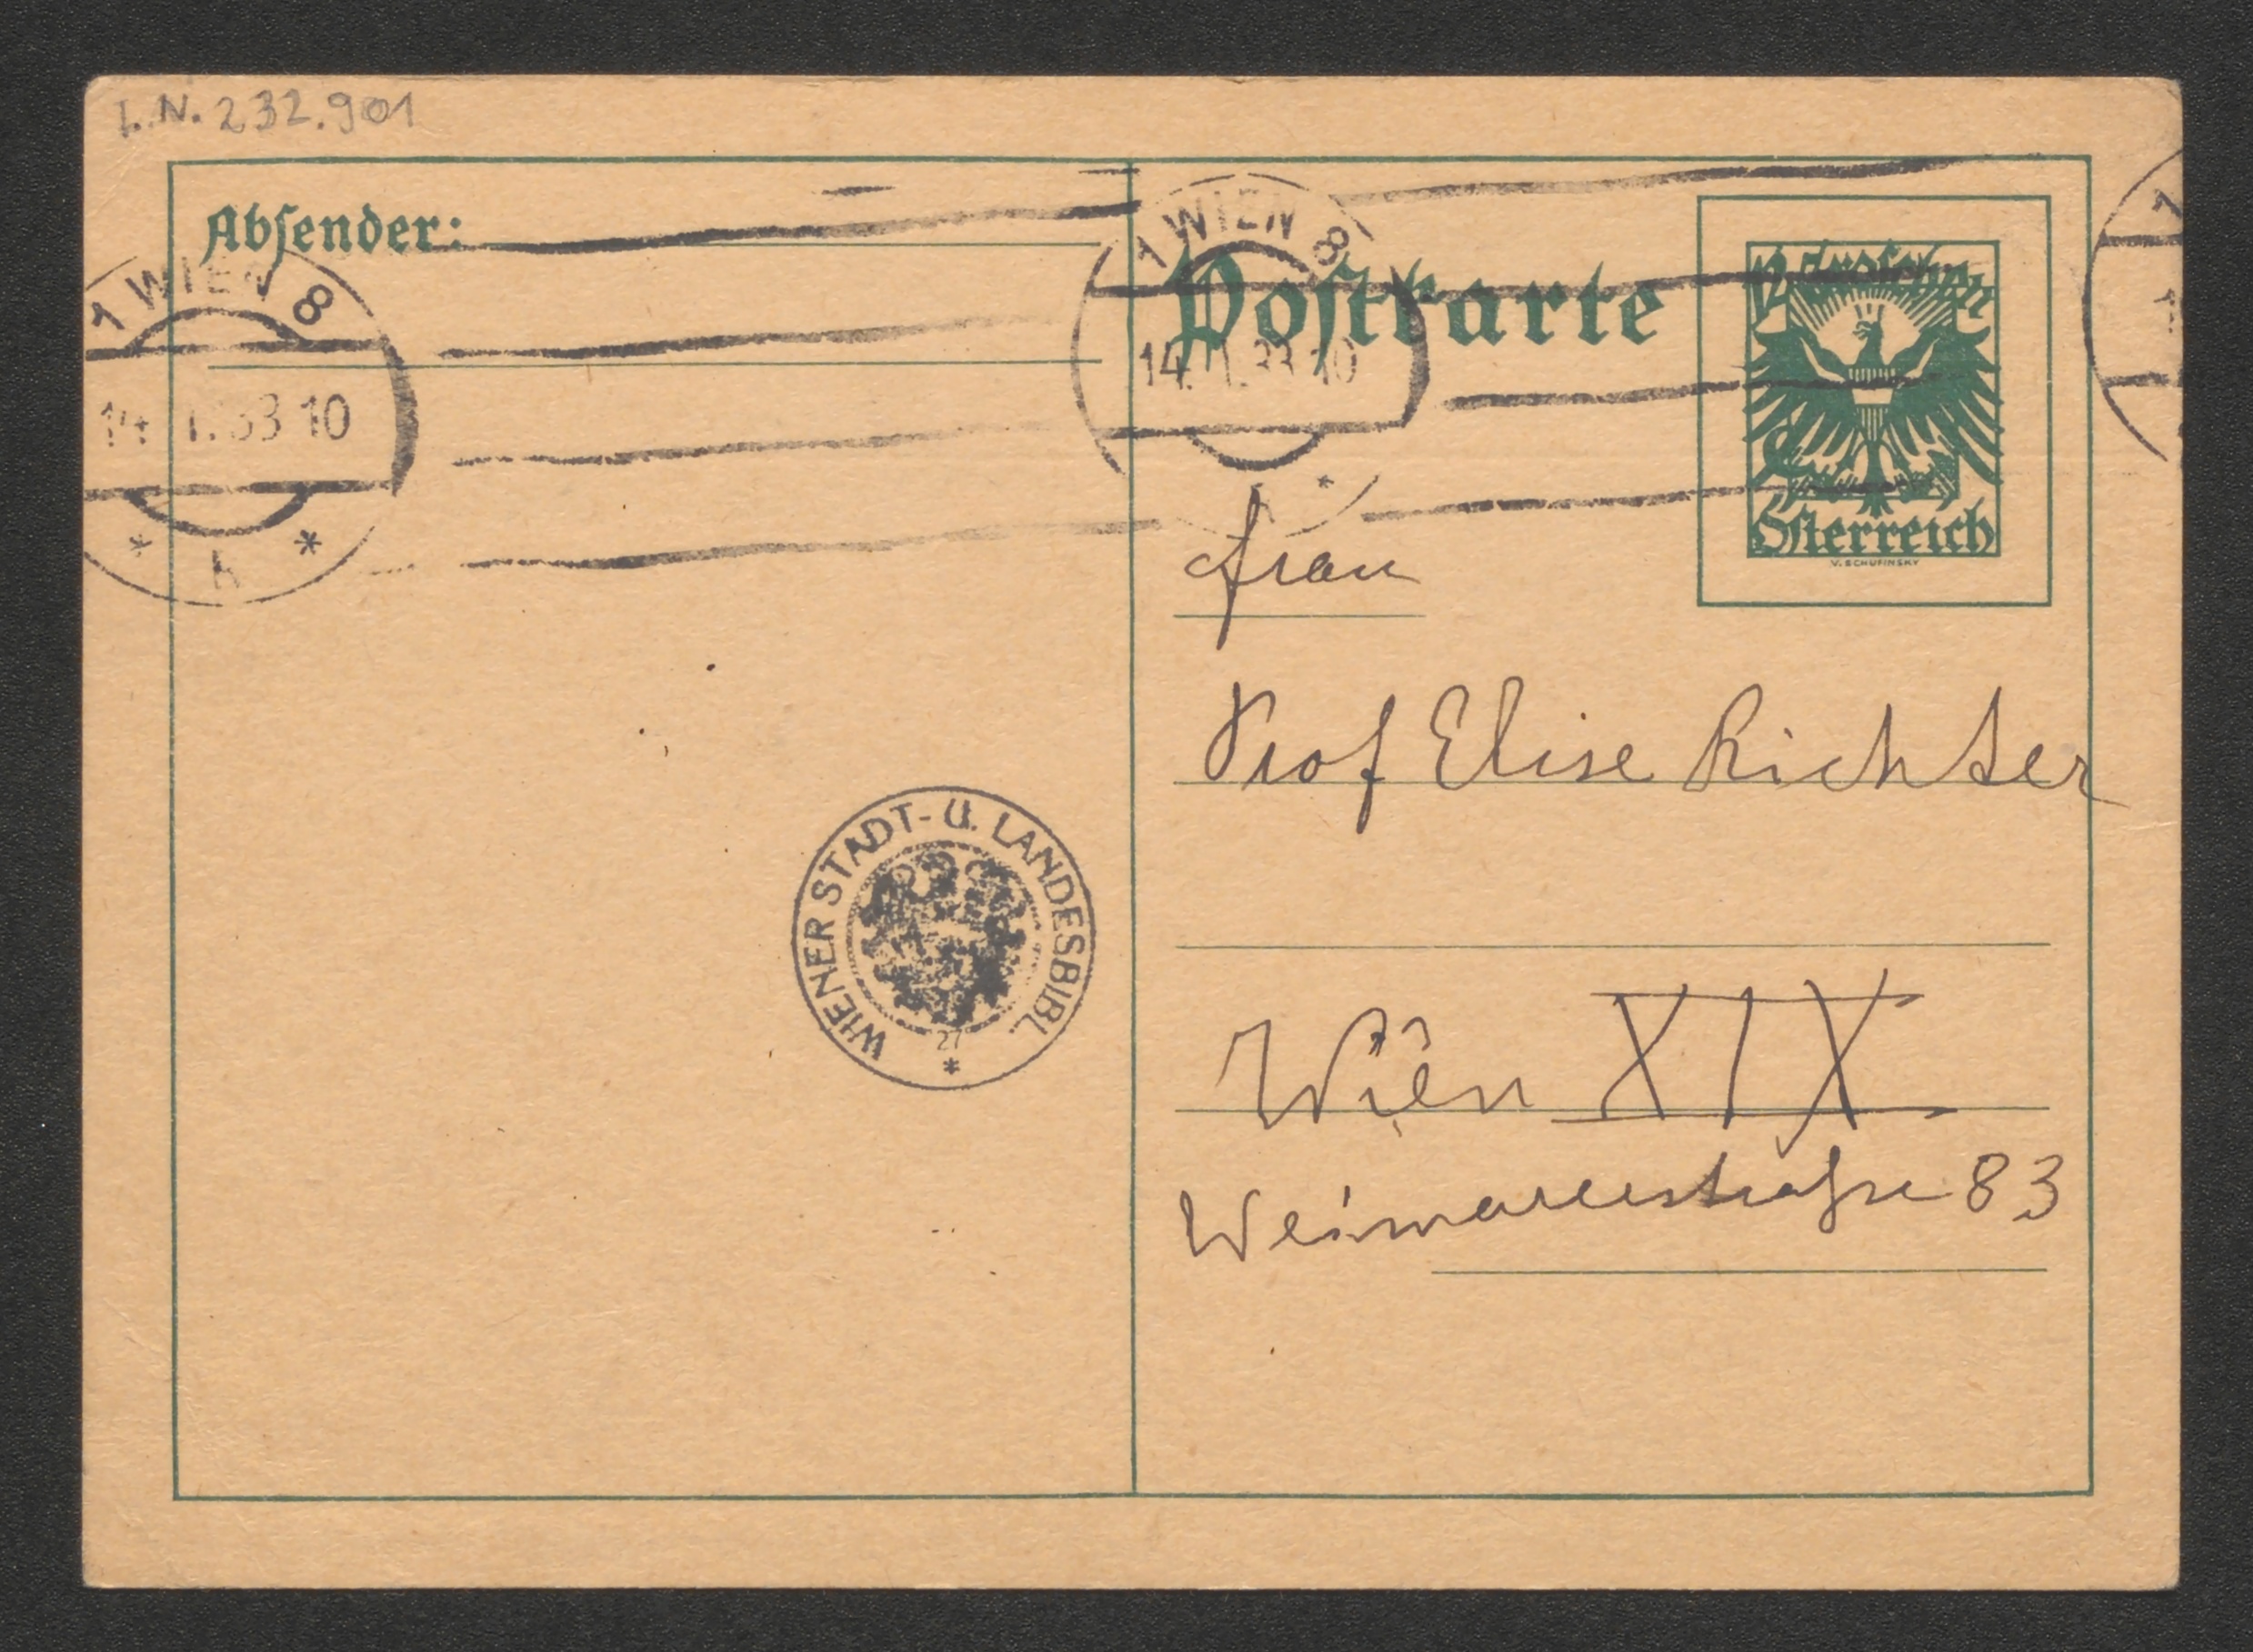 I.N. 232.901
Absender:
1 WIEN 8
14. I. 33 10
* h *
1 WIEN 8
14. I. 33 10
Postkarte
12 Groschen
Österreich
V. SCHUFINSKY
Frau
Prof Elise Richter
Wien XIX
Weimarerstraße 83
WIENER STADT- U. LANDESBIBL.
27
*